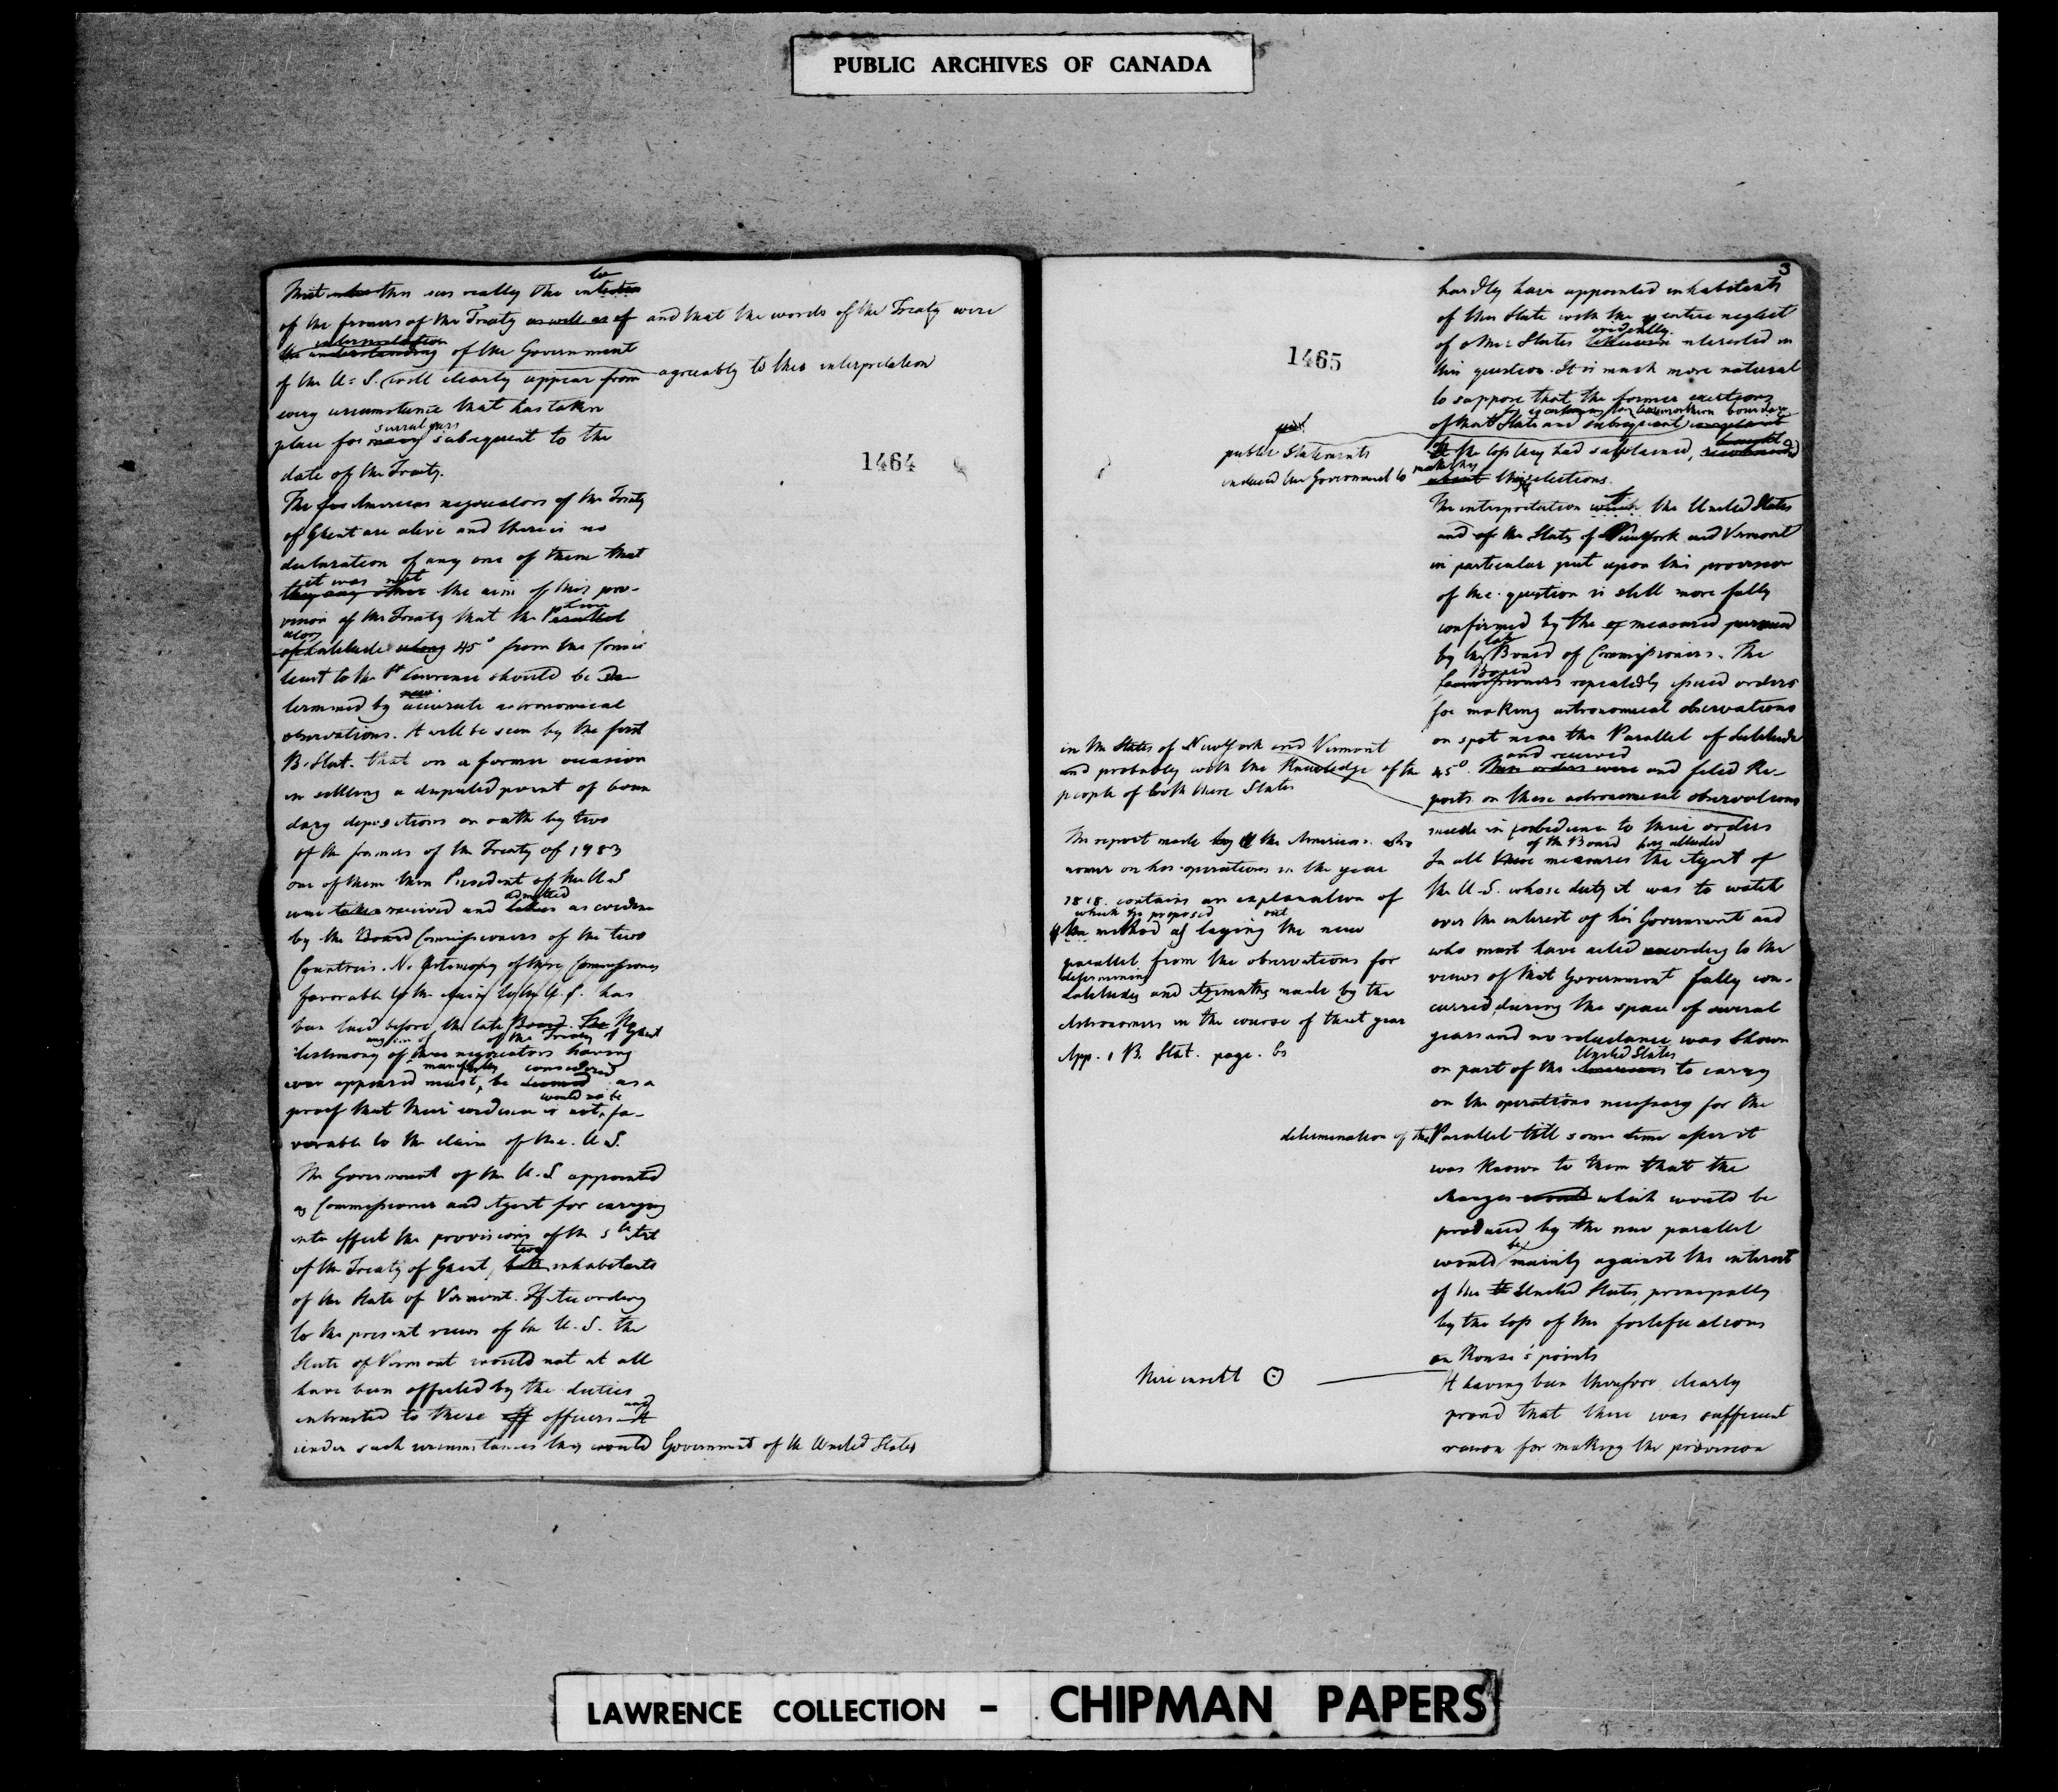 PUBLIC ARCHIVES OF CANADA
That this was really the
of the framers of the Treaty as well as of and that the words of the Treaty were
interpretation
the understanding of the Government
of the U. S. will clearly appear from agreeably to this interpretation
every circumstance that has taken
several years
place for many subsequent to the
date of the Treaty.
1464
The American negociators of the Treaty
of Ghent are alive and there is no
declaration of any one of them that
it was not
they any other the aim of this pro-
vision of the Treaty that the Parallel
of Latitude along 45° from the Connec
ticut to the St Lawrence should be de
new
termined by accurate astronomical
observations. It will be seen by the first
B. Stat. that on a former occasion
in settling a disputed point of boun
dary depositions on oath by two
of the framers of the Treaty of 1783
one of them then President of the U S
admitted
were taken received and taken as eviden
by the Board Commissioners of the two
Countries. No testimony of these Commissioners
favorable to the claim of the U. S. has
been laid before the late Board. The No
any one of of the Treaty of Ghent
testimony of these negociators having
manifestly considered
ever appeared must, be deemed as a
would not be
proof that their evidence is not fa-
vorable to the claim of the U. S.
The Government of the U. S appointed
as Commissioner and Agent for carrying
into effect the provisions of the 5th Art
two
of the Treaty of Ghent, both inhabitants
of the State of Vermont. If according
to the present views of the U. S. the
State of Vermont would not at all
have been affected by the duties
and
intrusted to these off officers
under such circumstances they would Government of the United States
3
hardly have appointed inhabitants
of this State with the entire neglect
evidently
of other States interested in
1465
this question. It is much more natural
to suppose that the former exertions
northern boundary
of that State and subsequent
public Statements
the loss they had sustained,
induced the Government to make this
about this elections.
The interpretation which the United States
and of the States of New York and Vermont
in particular put upon this provision
of the question is still more fully
confirmed by the of measures pursued
late
by the Board of Commissioners. The
Board
Commissioners repeatedly issued orders
for making astronomical observations
on spot near the Parallel of Latitude
and received
45°. These orders were and filed Re-
ports on these astronomical observations
in the States of New York and Vermont
and probably with the Knowledge of the
people of both these States
made in obedience to their orders
of the Board alluded
In all these measures the Agent of
the U. S. whose duty it was to watch
over the interest of his Government and
who must have acted according to the
views of that Government fully con-
curred, during the space of several
years and no reluctance was shown
United States
on part of the Americans to carry
on the operations necessary for the
The report made by the American astro
nomer on his operations in the year
1818. contains an explanation of
which he proposed out
the method of laying the new
parallel from the observations for
determining
Latitudes and Azimuths made by the
Astronomers in the course of that year
App. 1 B. Stat. page.
determination of the Parallel till some time after it
was known to them that the
changes would which would be
produced by the new parallel
be
would mainly against the interest
of the United States, principally
by the loss of the fortifications
on Rouse's points
Here insert ⊙
It having been therefore clearly
proved that there was sufficient
reason for making the provision
LAWRENCE COLLECTION - CHIPMAN PAPERS